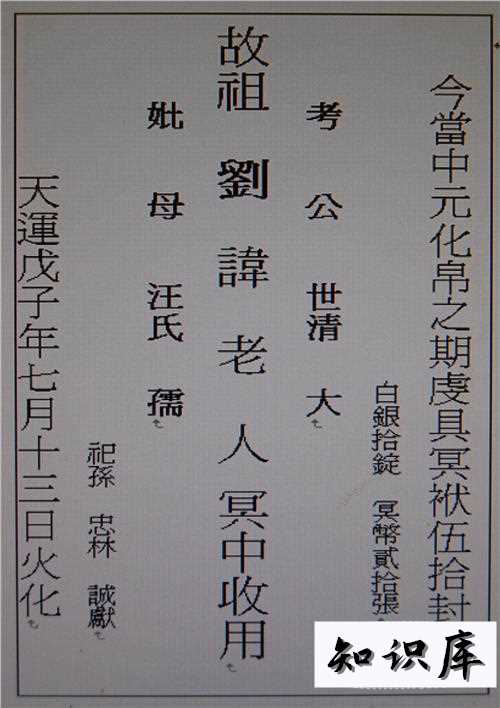 今當中元化帛之期虔具冥袱伍拾封
白銀拾錠 冥幣貳拾張
考 公 世清 大
故祖 劉 諱 老 人 冥中收用
妣 母 汪氏 孺
祀孫 忠林 誠獻
天運戊子年七月十三日火化
知识库